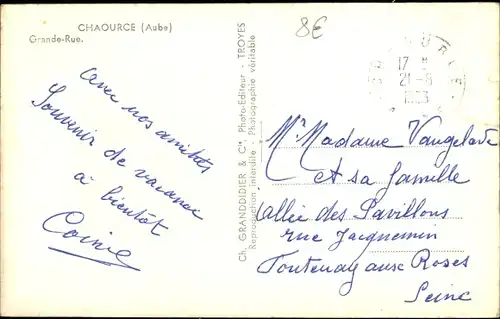 CHAOURCE (Aube)
Grande-Rue.
8€
17
21-8
Avec nos amitiés
Souvenir de vacance
à bientôt
Ch. GRANDDIDIER & Cie, Photo-Editeur - TROYES
Reproduction interdite - Photographie véritable
Mr Madame
et sa famille
Allée des Pavillons
rue Jacquemin
Fontenay aux Roses
Seine